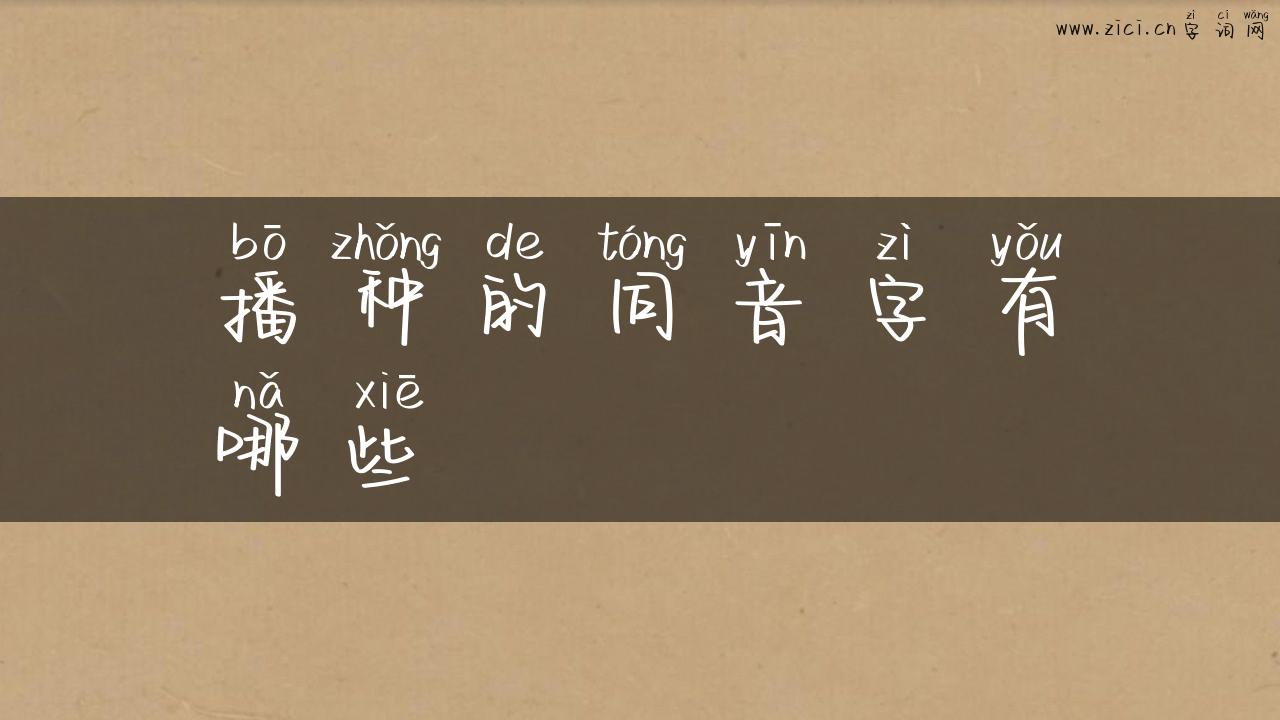 zì cí wǎng
www.zici.cn 字 词 网
bō zhǒng de tóng yīn zì yǒu
播 种 的 同 音 字 有
nǎ xiē
哪 些